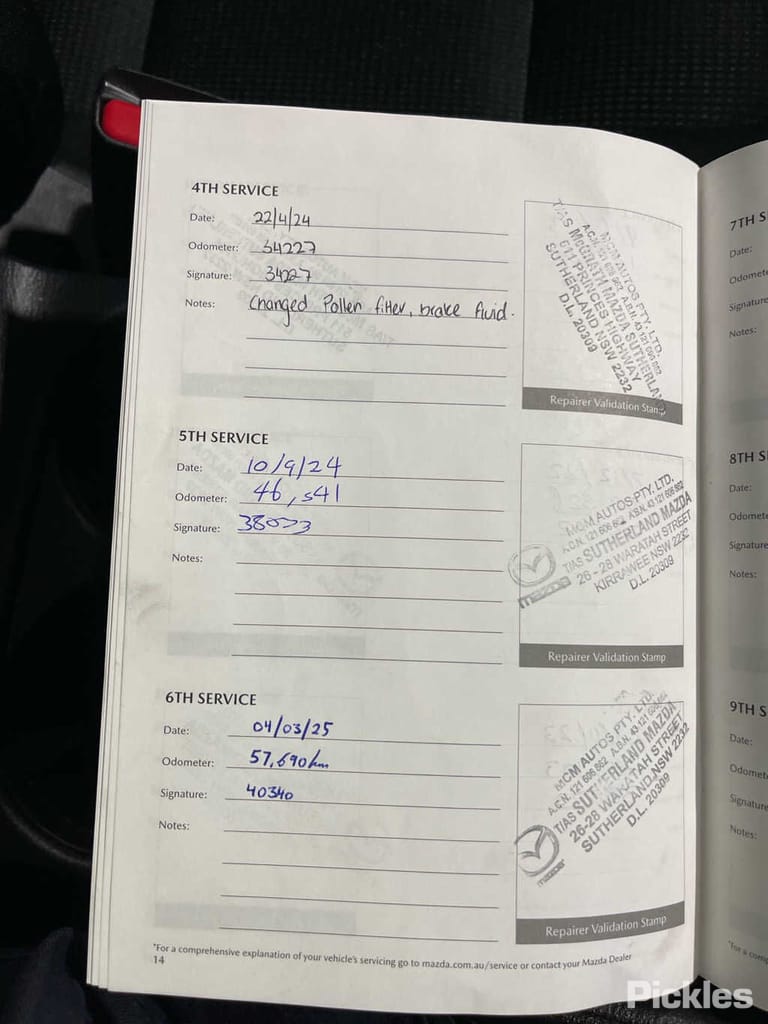 4TH SERVICE
Date: 22/4/24
Odometer: 34227
Signature: 34227
Notes: Changed Pollen filter, brake fluid.
MCM AUTOS PTY. LTD.
A.C.N. 121 606 862 A.B.N. 43 121 606 862
T/AS McGRATH MAZDA SUTHERLAND
611 PRINCES HIGHWAY
SUTHERLAND NSW 2232
D.L. 20309
Repairer Validation Stamp
5TH SERVICE
Date: 10/9/24
Odometer: 46,541
Signature:
Notes:
MCM AUTOS PTY. LTD.
A.C.N. 121 606 862 A.B.N. 43 121 606 862
T/AS SUTHERLAND MAZDA
26 - 28 WARATAH STREET
KIRRAWEE NSW 2232
D.L. 20309
mazda
Repairer Validation Stamp
6TH SERVICE
Date: 04/03/25
Odometer: 57,690km
Signature: 40340
Notes:
MCM AUTOS PTY. LTD.
A.C.N. 121 606 862 A.B.N. 43 121 606 862
T/AS SUTHERLAND MAZDA
26-28 WARATAH STREET
SUTHERLAND NSW 2232
D.L. 20309
mazda
Repairer Validation Stamp
*For a comprehensive explanation of your vehicle's servicing go to mazda.com.au/service or contact your Mazda Dealer
14
7TH S
Date:
Odomete
Signature
Notes:
8TH S
Date:
Odomete
Signature
Notes:
9TH S
Date:
Odomete
Signature
Notes:
*For a comp
Pickles